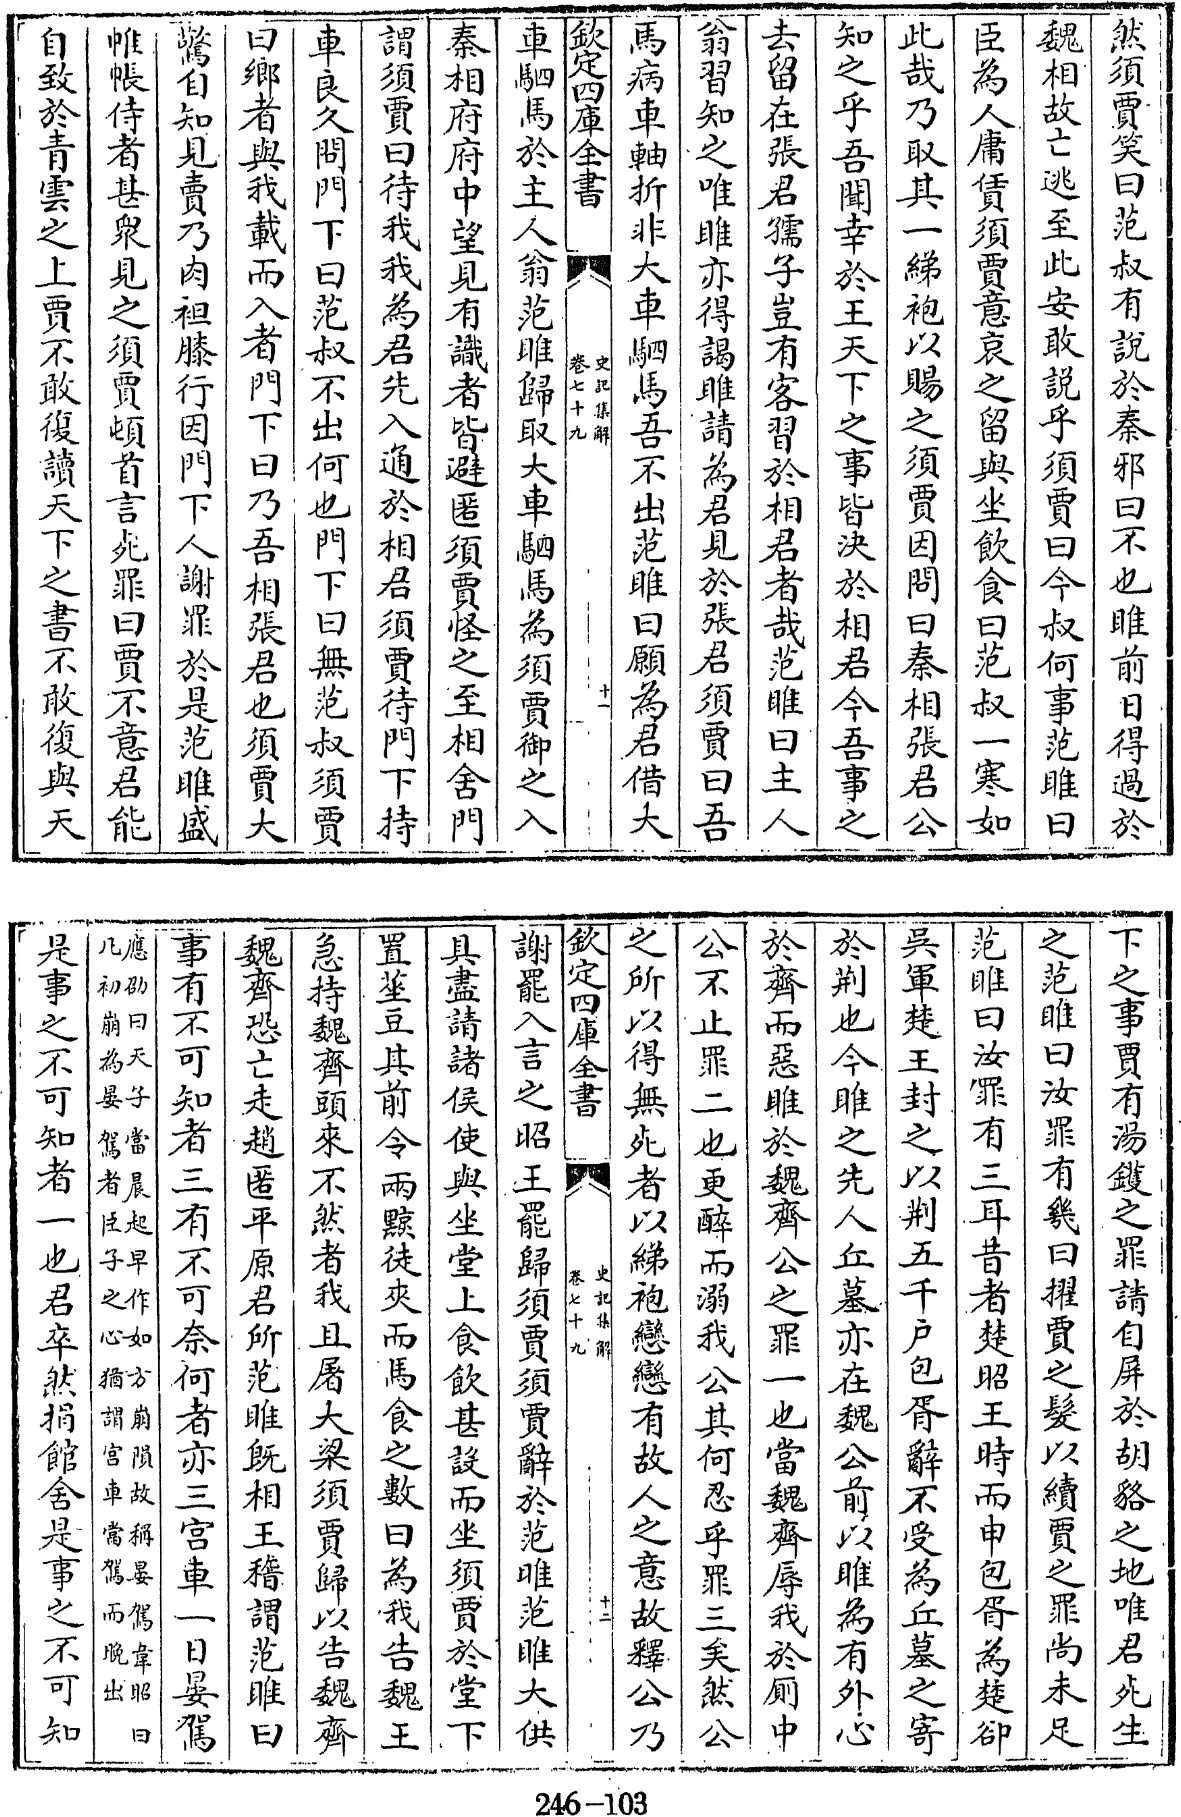 然須賈笑曰范叔有說於秦邪曰不也雎前日得過於
魏相故亡逃至此安敢説乎須賈曰今叔何事范雎曰
臣為人庸賃須賈意哀之留與坐飲食曰范叔一寒如
此哉乃取其一綈袍以賜之須賈因問曰秦相張君公
知之乎吾聞幸於王天下之事皆決於相君今吾事之
去留在張君孺子豈有客習於相君者哉范雎曰主人
翁習知之唯雎亦得謁雎請為君見於張君須賈曰吾
馬病車軸折非大車駟馬吾不出范雎曰願為君借大
欽定四庫全書
史記集解
卷七十九
十一
車駟馬於主人翁范雎歸取大車駟馬為須賈御之入
秦相府府中望見有識者皆避匿須賈怪之至相舍門
謂須賈曰待我我為君先入通於相君須賈待門下持
車良久問門下曰范叔不出何也門下曰無范叔須賈
曰鄉者與我載而入者門下曰乃吾相張君也須賈大
驚自知見賣乃肉袒膝行因門下人謝罪於是范雎盛
帷帳侍者甚衆見之須賈頓首言死罪曰賈不意君能
自致於青雲之上賈不敢復讀天下之書不敢復與天
下之事賈有湯鑊之罪請自屏於胡貉之地唯君死生
之范雎曰汝罪有幾曰擢賈之髮以續賈之罪尚未足
范雎曰汝罪有三耳昔者楚昭王時而申包胥為楚卻
吳軍楚王封之以荆五千户包胥辭不受為丘墓之寄
於荆也今雎之先人丘墓亦在魏公前以雎為有外心
於齊而惡雎於魏齊公之罪一也當魏齊辱我於厠中
公不止罪二也更醉而溺我公其何忍乎罪三矣然公
之所以得無死者以綈袍戀戀有故人之意故釋公乃
欽定四庫全書
史記集解
卷七十九
十二
謝罷入言之昭王罷歸須賈須賈辭於范雎范雎大供
具盡請諸侯使與坐堂上食飲甚設而坐須賈於堂下
置莝豆其前令兩黥徒夾而馬食之數曰為我告魏王
急持魏齊頭來不然者我且屠大梁須賈歸以告魏齊
魏齊恐亡走趙匿平原君所范雎既相王稽謂范雎曰
事有不可知者三有不可奈何者亦三宫車一日晏駕
應劭曰天子當晨起早作如方崩隕故稱晏駕韋昭曰
凡初崩為晏駕者臣子之心猶謂宫車當駕而晚出
是事之不可知者一也君卒然捐館舍是事之不可知
246-103